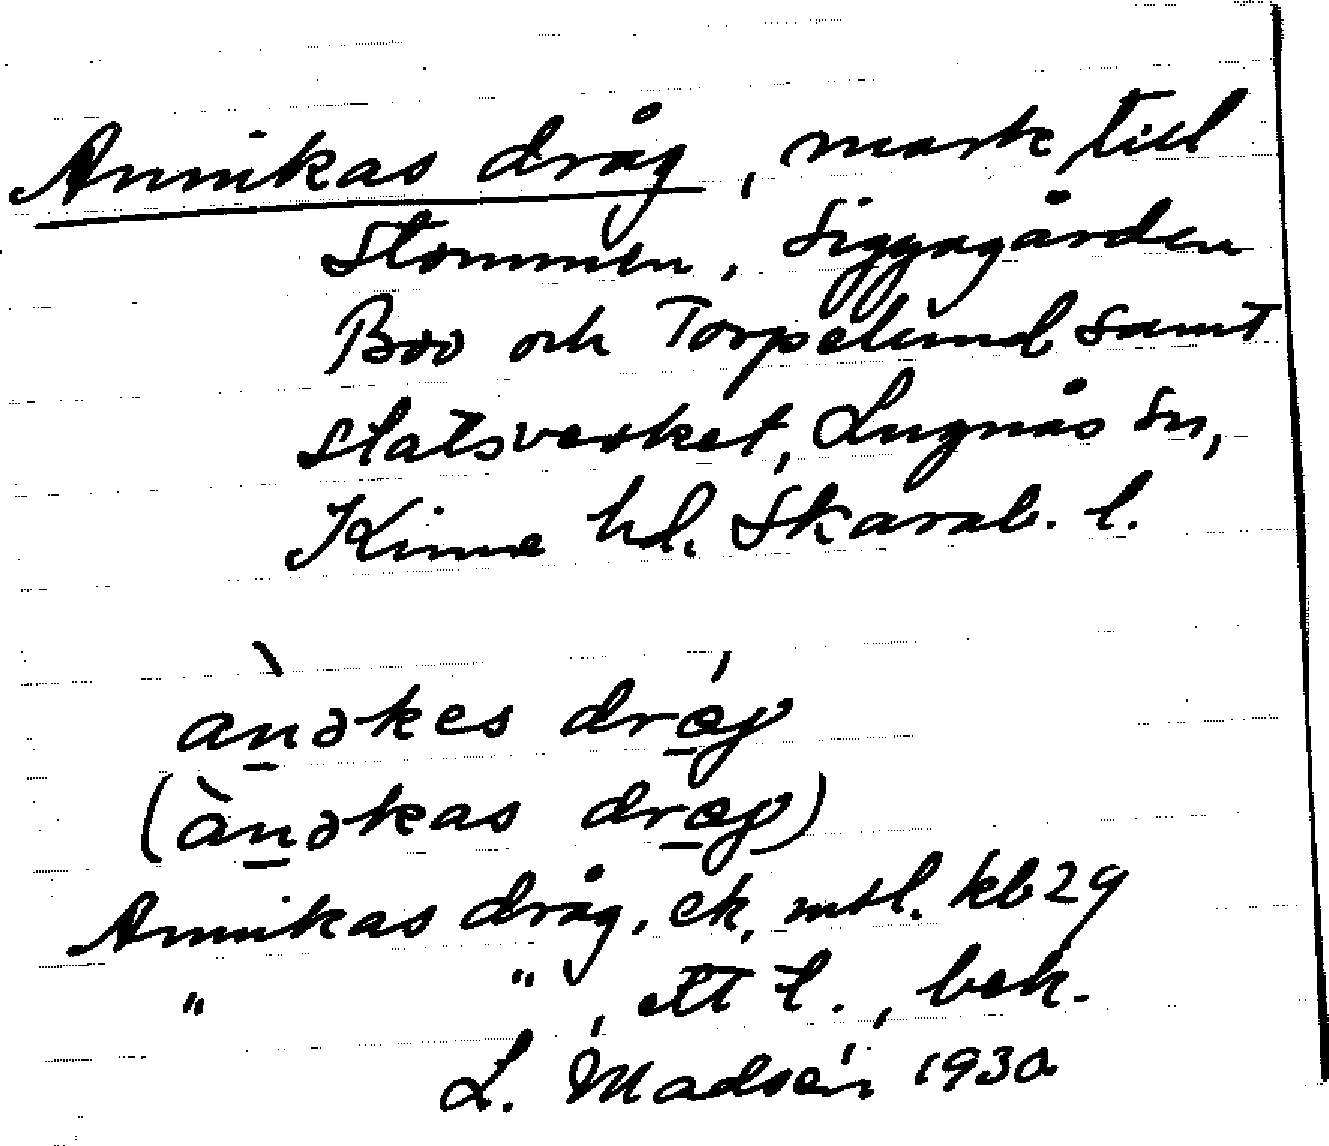 Annikas dråg, mark till
Stommen, Siggagården
Boo och Torpelund samt
Statsverket, Lugnås sn,
Kinne hd. Skarab. l.
ànəkes drág
(ànəkas dràg)
Annikas dråg, ek, mtl. kb 29
" " , ett t., bek.
L. Madsén 1930